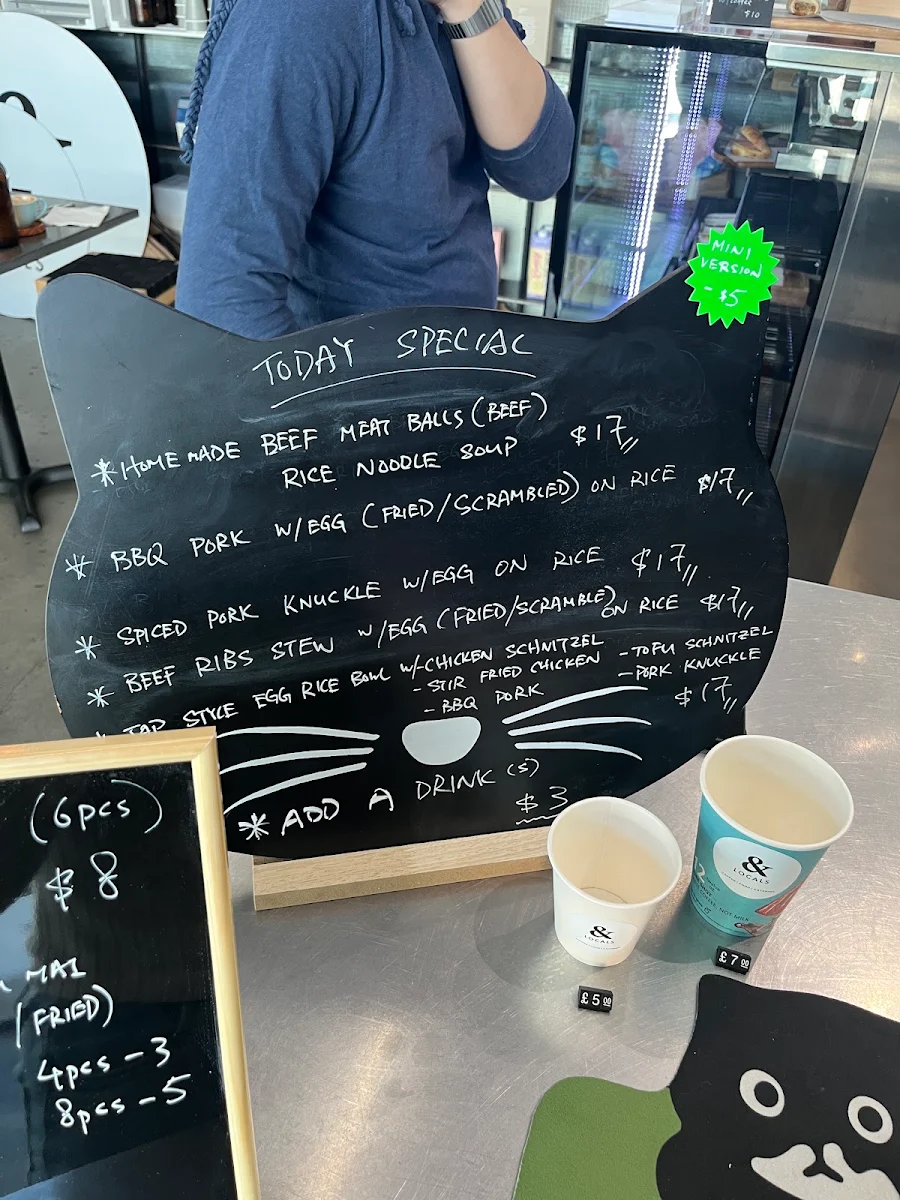 $10
MINI
VERSION
- $5
TODAY SPECIAL
* HOME MADE BEEF MEAT BALLS (BEEF)
RICE NOODLE SOUP $17
* BBQ PORK W/EGG (FRIED/SCRAMBLED) ON RICE $17
* SPICED PORK KNUCKLE W/EGG ON RICE $17
* BEEF RIBS STEW W/EGG (FRIED/SCRAMBLE) ON RICE $17
* JAP STYLE EGG RICE BOWL W/-CHICKEN SCHNITZEL - TOFU SCHNITZEL
- STIR FRIED CHICKEN - PORK KNUCKLE
- BBQ PORK $17
* ADD A DRINK (S)
$3
(6pcs)
$8
MAI
(FRIED)
4pcs - 3
8pcs - 5
&
LOCALS
£ 5 00
&
LOCALS
12
NOT MILK
£ 7 00